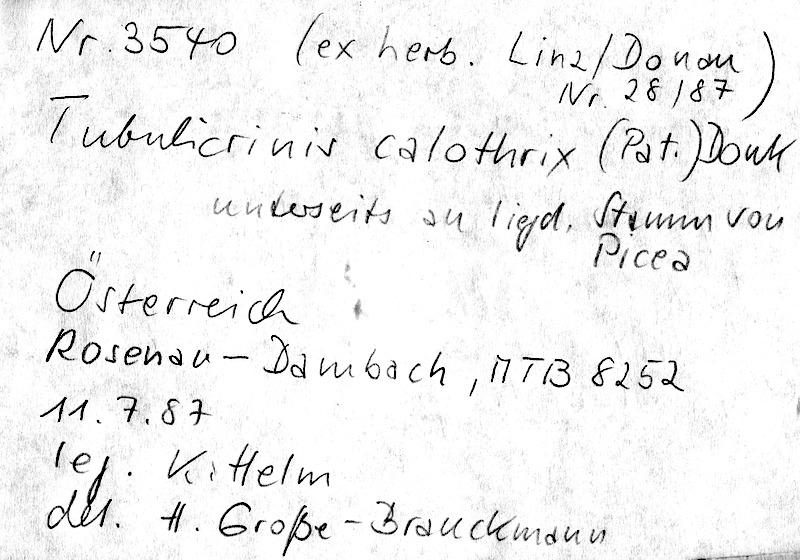 Nr. 3540 (ex herb. Linz/Donau
Nr. 28/87)
Tubulicrinis calothrix (Pat.) Donk
unterseits an liegd. Stamm von
Picea
Österreich
Rosenau - Dambach, MTB 8252
11.7.87
leg. K. Helm
det. H. Große-Brauckmann